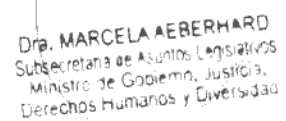 Dra. MARCELA AEBERHARD
Subsecretaria de Asuntos Legislativos
Ministro de Gobierno, Justicia,
Derechos Humanos y Diversidad